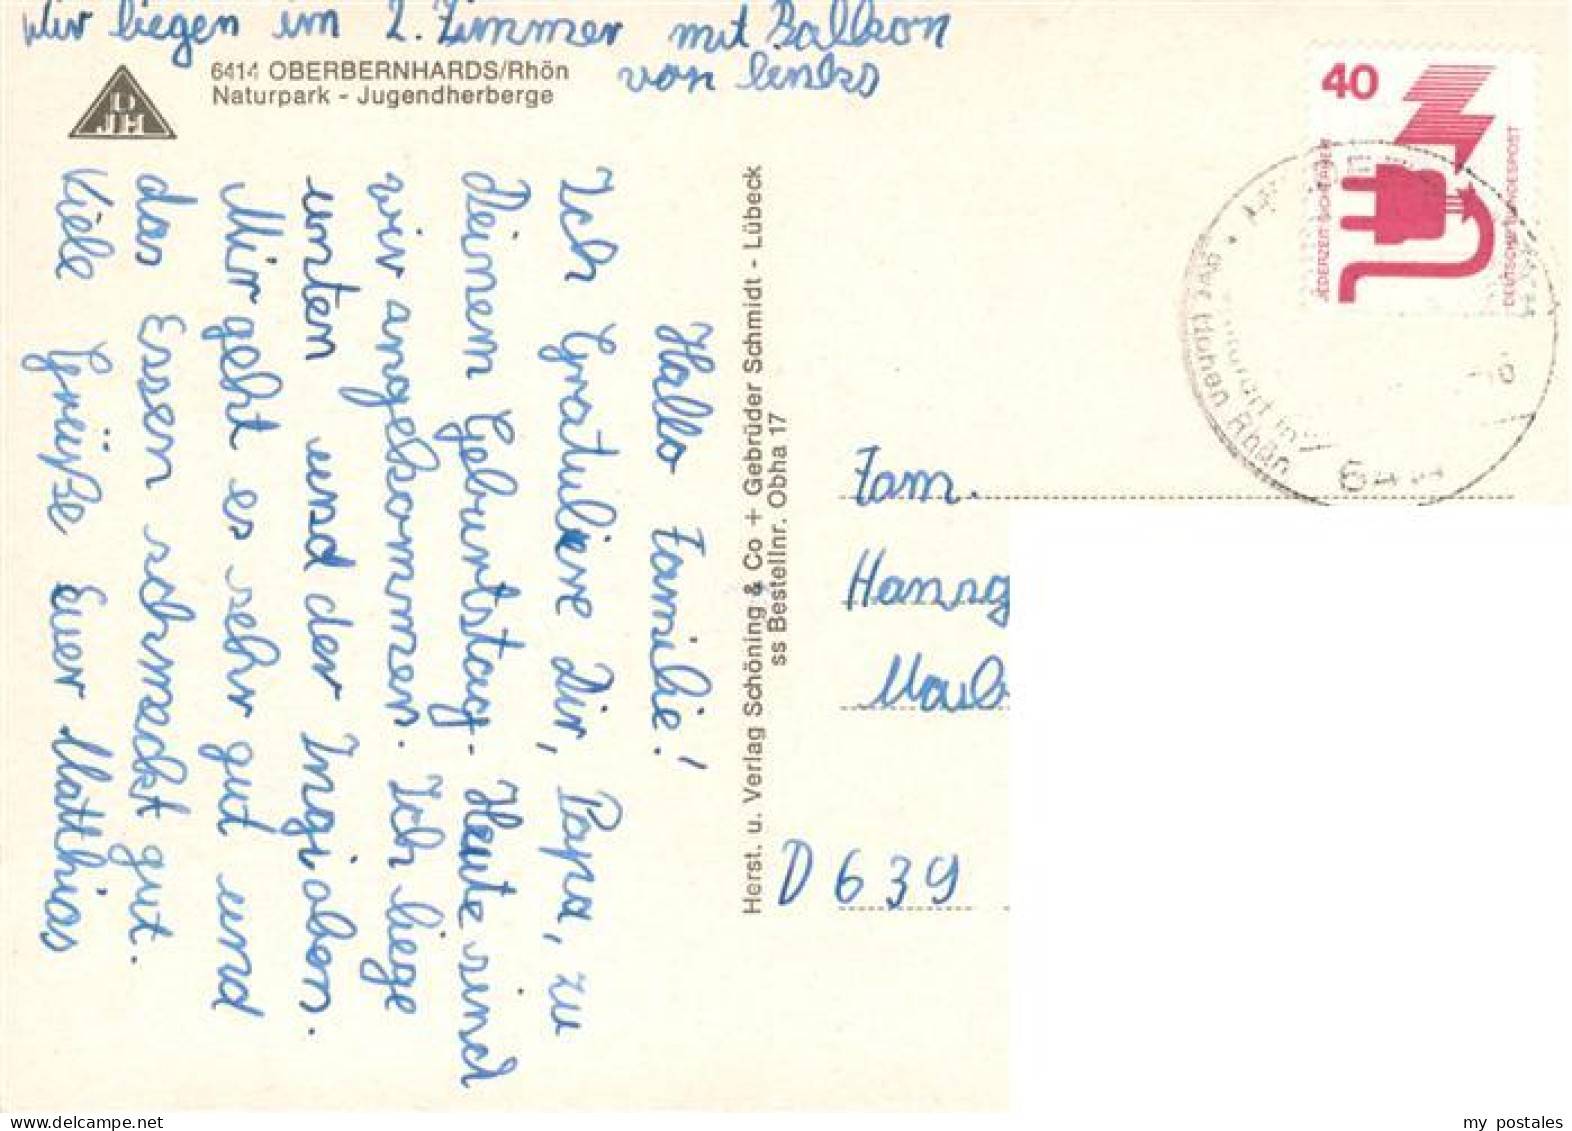 Wir liegen im 2. Zimmer mit Balkon
von lenks
6414 OBERBERNHARDS/Rhön
Naturpark - Jugendherberge
DJH
Hallo Familie!
Ich Gratuliere Dir, Papa, zu
Deinem Geburtstag. Heute sind
wir angekommen. Ich liege
unten und der Ingi oben.
Mir geht es sehr gut und
das Essen schmeckt gut.
Viele Grüße Euer Matthias
Herst. u. Verlag Schöning & Co + Gebrüder Schmidt - Lübeck
ss Bestellnr. Obha 17
40
JEDERZEIT SICHERHEIT
DEUTSCHE BUNDESPOST
der Hohen Rhön
Fam.
Hansg
D 639
my postales